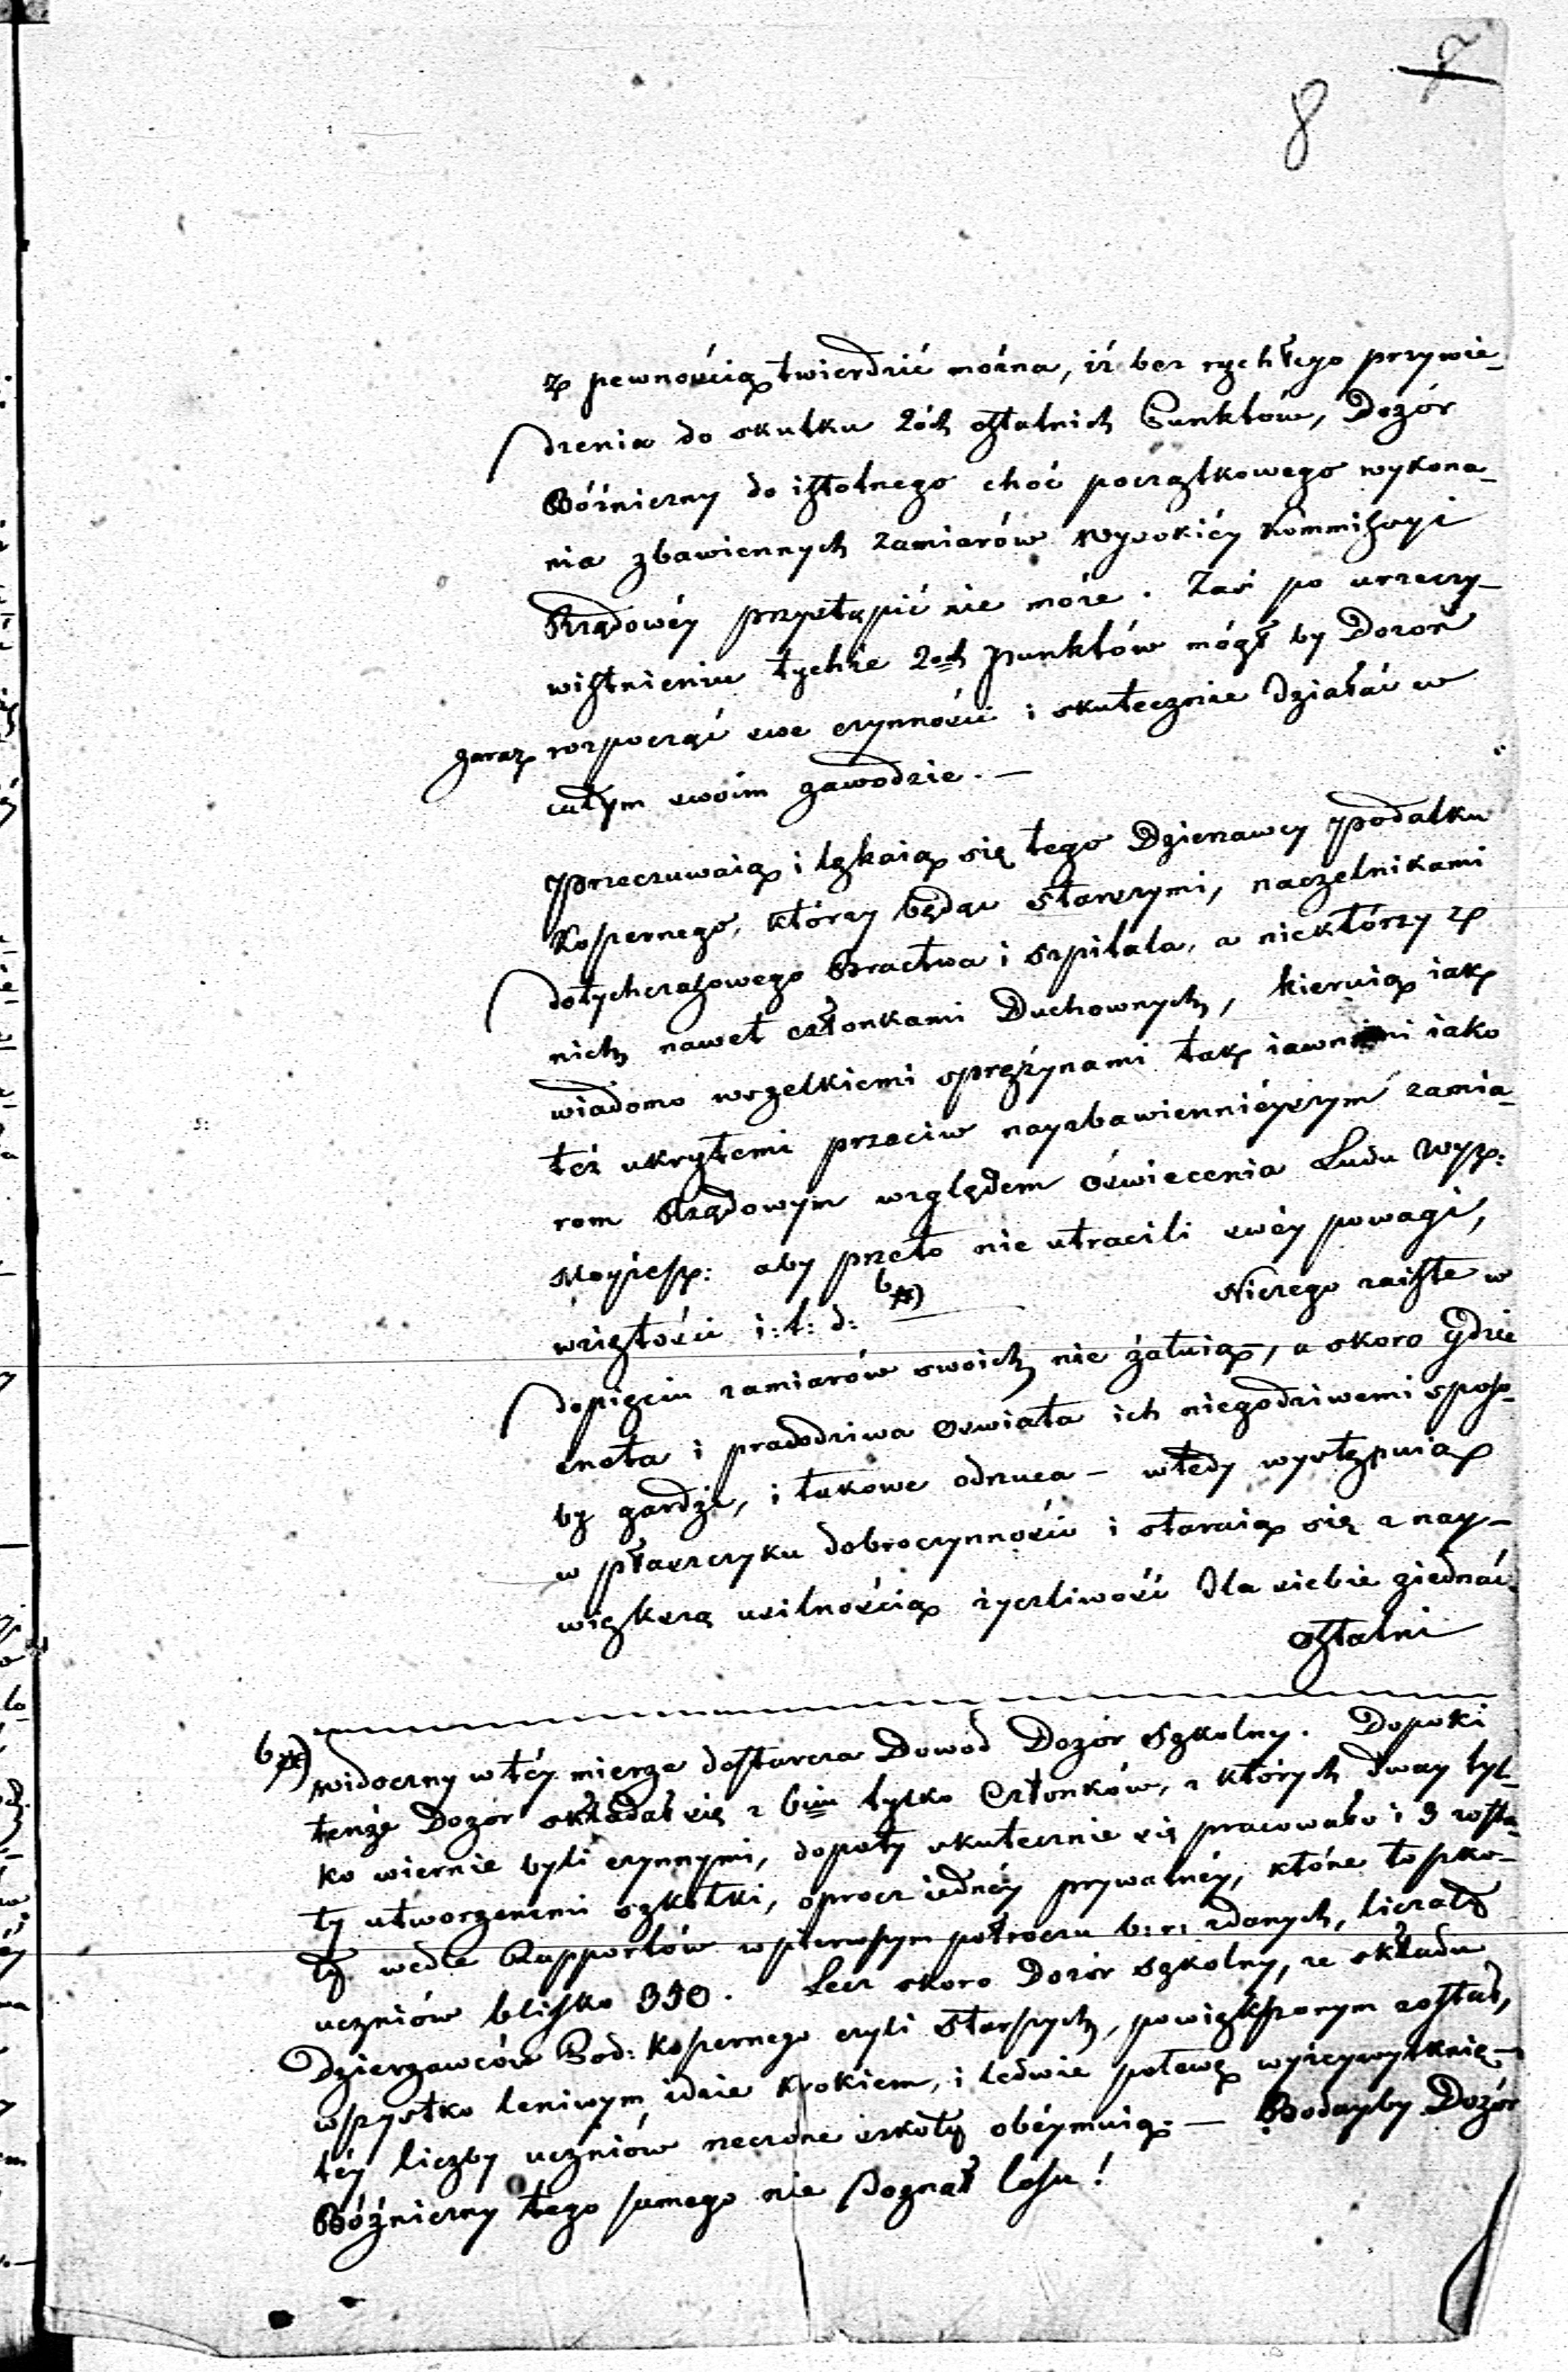 7
8
z pewnością twierdzić można, iż bez rychłego przywie-
dzenia do skutku 2óch ostatnich Punktów, Dozór
Bóżniczny do istotnego choć początkowego wykona-
nia zbawiennych zamiarów Wysokiéy Kommissyi
Rządowéy przystąpić nie może. Zaś po urzeczy-
wistnieniu tychże 2ch punktów mógł by Dozór
zaraz rozpocząć swe czynności i skutecznie działać w
całym swoim zawodzie. —
Przeczuwaią i lękaią się tego Dzierzawcy Podatku
Koszernego, którzy będąc Starszymi, naczelnikami
dotychczasowego Bractwa i Szpitala, a niektórzy z
nich nawet członkami Duchownych, kieruią iak
wiadomo wszelkiemi sprężynami tak iawnemi iako
też ukrytemi przeciw nayzbawiennieyszym zamia-
rom Rządowym względem Oświecenia Ludu Wyz:
Moyżesz: aby przeto nie utracili swéy powagi,
wziętości i: t: d: b*) Niczego zaiste w
dopięciu zamiarów swoich nie żałuią, a skoro gdzie
cnota i prawdziwa Oświata ich niegodziwemi sposo-
by gardzi, i takowe odrzuca – wtedy występuią
w płaszczyku dobroczynności i staraią się z nay-
większą usilnością życzliwość dla siebie ziednać.
Ostatni
b*) Widoczny w téy mierze dostarcza Dowód Dozór Szkolny. Dopoki
tenże Dozór składał się z 6iu tylko Członków, z których dway tyl-
ko wiernie byli czynnymi, dopoty skutecznie się pracowało i 3 zosta-
ły utworzonemi szkółki, oprocz iednéy prywatnéy, które to szko-
ły wedle Rapportów w pierwszym półroczu b: r: zdanych, liczały
uczniów blisko 350. Lecz skoro Dozór Szkolny, ze składu
Dzierzawców Pod: Koszernego czyli Starszych, powiększonym został,
wszystko leniwym idzie krokiem, i ledwie połowę wyżeywytknię-
téy liczby uczniów rzeczone szkoły obéymuią. — Bodayby Dozór
Bóżniczny tego samego nie doznał losu!